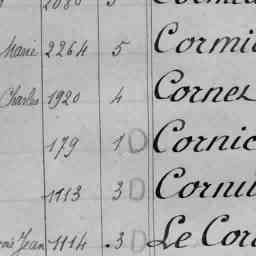 Marie 2264 5 Cormi
Charles 1920 4 Cornet
179 1 D Cornic
1113 3 D Cornu
Jean 1114 . 3 D Le Cor